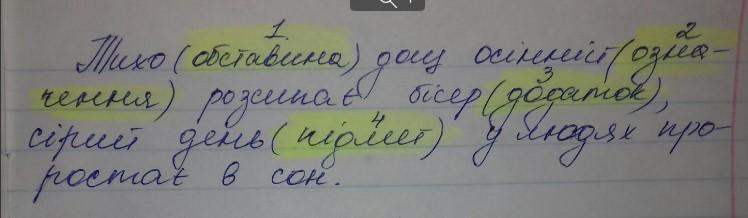 1 2
Тихо (обставина) дощ осінній (озна-
3
чення) розсипає бісер (додаток),
4
сірий день (підмет) у людях про-
ростає в сон.